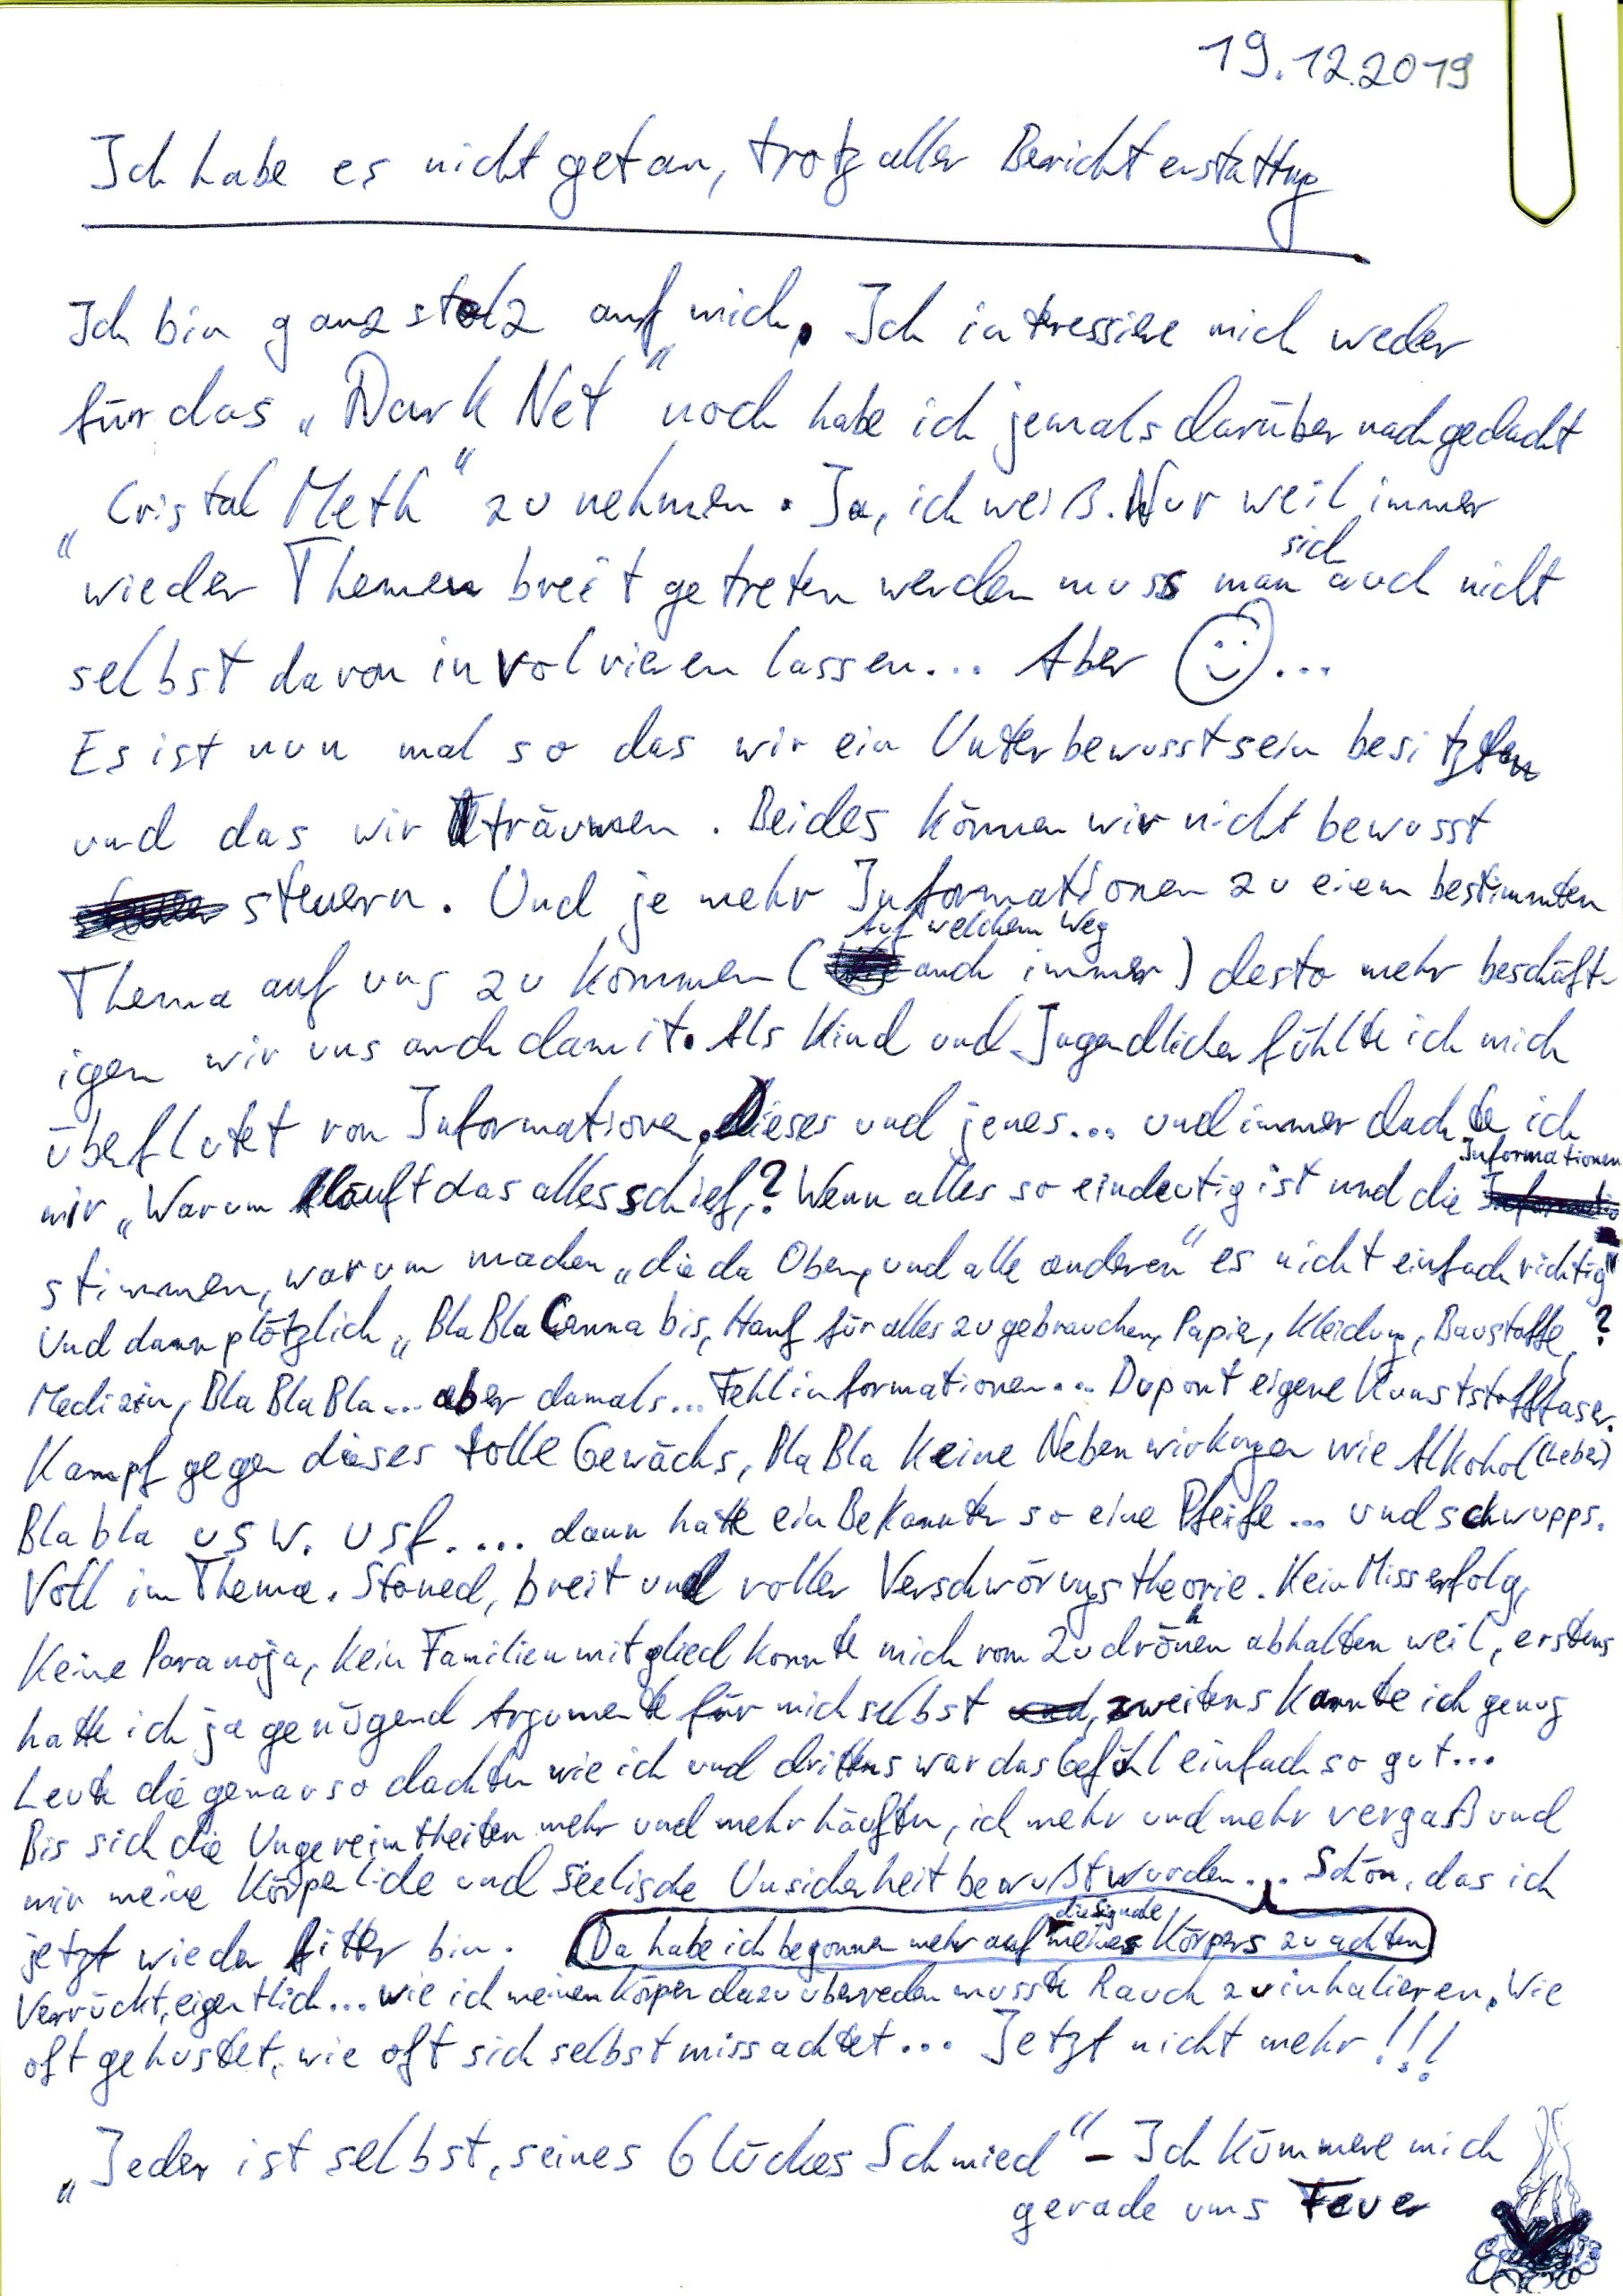 19.12.2019
Ich habe es nicht getan, trotz aller Berichterstattung
Ich bin ganz stolz auf mich. Ich intressiere mich weder
für das „Dark Net" noch habe ich jemals darüber nachgedacht
„Cristal Meth" zu nehmen. Ja, ich weiß. Nur weil immer
wieder Themen breit getreten werden muss man sich auch nicht
selbst davon involvieren lassen... Aber ☺...
Es ist nun mal so das wir ein Unterbewusstsein besitzen
und das wir träumen. Beides können wir nicht bewusst
steuern. Und je mehr Informationen zu eiem bestimmten
Thema auf uns zu kommen (Auf welchem Weg auch immer) desto mehr beschäft-
igen wir uns auch damit. Als Kind und Jugendlicher fühlte ich mich
übeflutet von Informationen. Dieses und jenes... und immer dachte ich
mir „Warum läuft das alles schief,? Wenn alles so eindeutig ist und die Informationen
stimmen, warum machen „die da Oben, und alle anderen" es nicht einfach richtig"
Und dann plötzlich „Bla Bla Cannabis, Hanf für alles zu gebrauchen, Papier, Kleidung, Baustoffe, ?
Medizin, Bla Bla Bla... aber damals... Fehlinformationen... Dupont eigene Kunststofffaser.
Kampf gegen dieses tolle Gewächs, Bla Bla Keine Nebenwirkungen wie Alkohol (Leber)
Bla bla usw. usf.... dann hatte ein Bekannter so eine Pfeife... und schwupps.
Voll im Thema. Stoned, breit und voller Verschwörungstheorie. Kein Misserfolg,
Keine Paranoja, kein Familienmitglied konnte mich vom Zudröhnen abhalten weil, erstens
hatte ich ja genügend Argumente für mich selbst zweitens kannte ich genug
Leute die genauso dachten wie ich und drittens war das Gefühl einfach so gut...
Bis sich die Ungereimtheiten mehr und mehr häuften, ich mehr und mehr vergaß und
mir meine Körperliche und Seelische Unsicherheit bewußt wurden... Schön, das ich
jetzt wieder fitter bin. Da habe ich begonnen mehr auf die Signale meines Körpers zu achten
Verrückt, eigentlich... wie ich meinen Körper dazu überreden musste Rauch zu inhalieren. Wie
oft gehustet, wie oft sich selbst missachtet... Jetzt nicht mehr!!!
„Jeder ist selbst, seines Glückes Schmied" - Ich kümmere mich
gerade ums Feuer